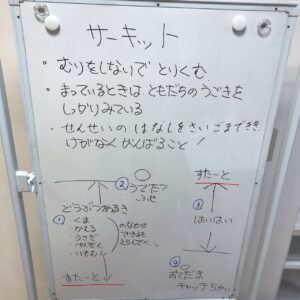 サーキット
・むりをしないで とりくむ
・まっているときは、ともだちのうごきを
しっかりみている
・せんせいの はなしをさいごまできき
けがなく がんばること!
② うでた?
ふせ
どうぶつあるき
①
・くま
・かえる
・うさぎ
・いもむし
のなかで
すたーと
すたーと
③
はいはい
④
おてだま
キャッチ